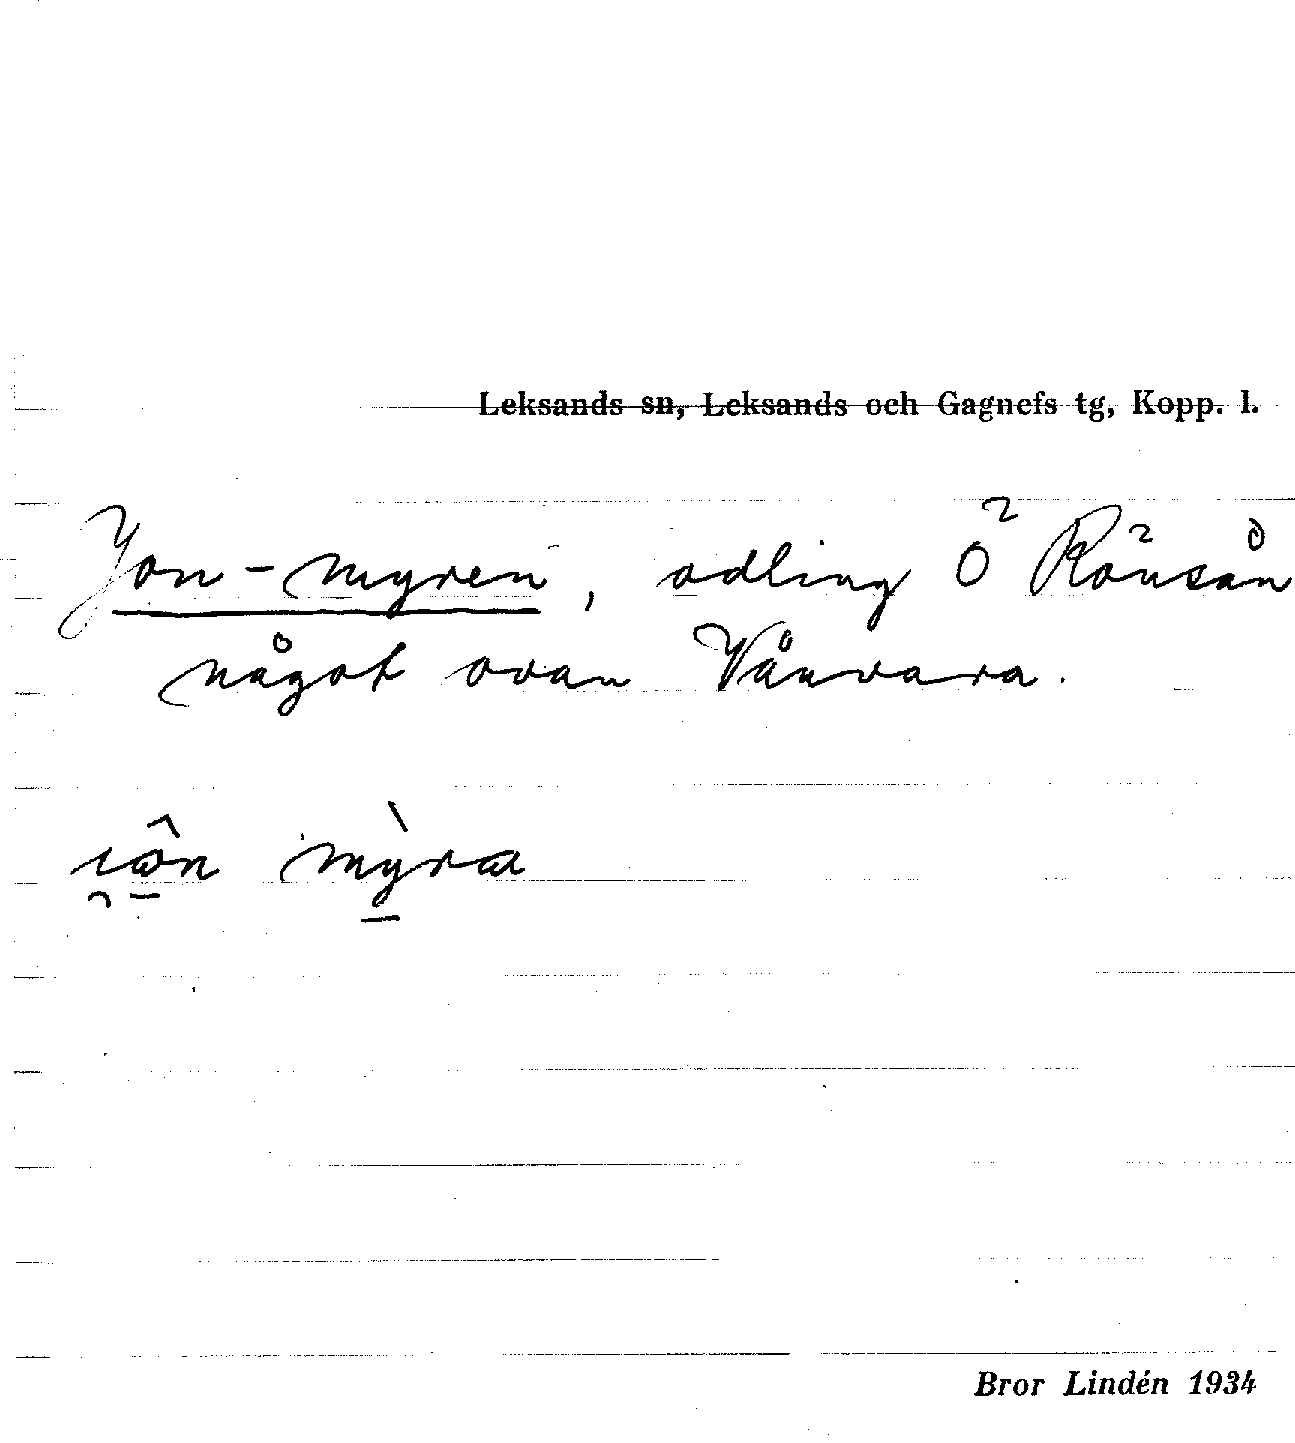 Leksands sn, Leksands och Gagnefs tg, Kopp. l.
Jon-myren, odling Ö Rönsån
något ovan Vånvara.
i̯ôn mỳra
Bror Lindén 1934